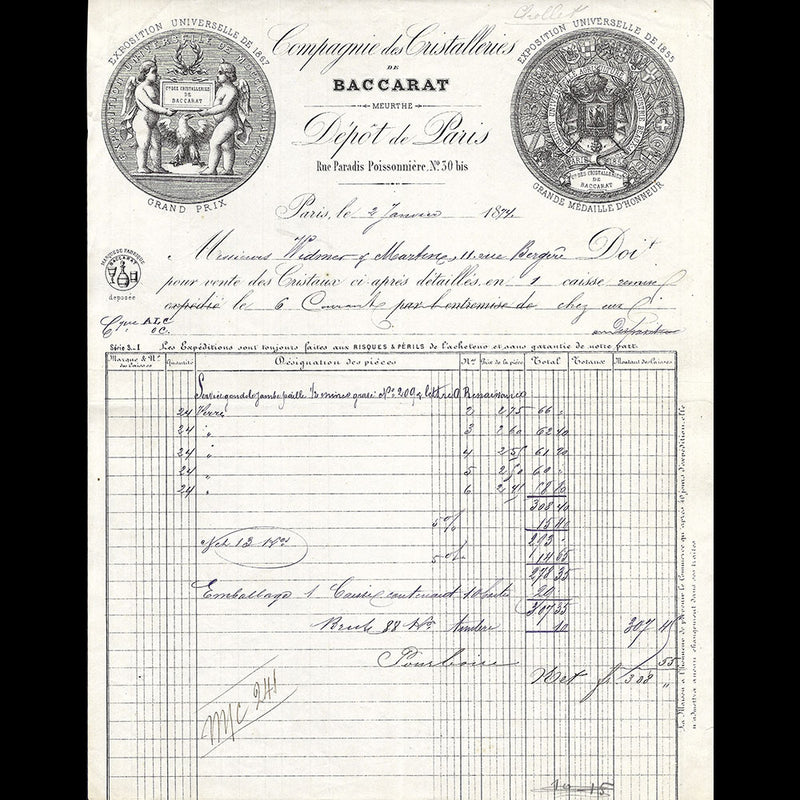 EXPOSITION UNIVERSELLE DE 1867
GRAND PRIX
Cie DES CRISTALLERIES
DE
BACCARAT
EXPOSITION UNIVERSELLE DE 1855
GRANDE MÉDAILLE D'HONNEUR
Cie DES CRISTALLERIES
DE
BACCARAT
Compagnie des Cristalleries
DE
BACCARAT
MEURTHE
Dépôt de Paris
Rue Paradis Poissonnière, No 30 bis
Paris, le 2 Janvier 1874
MARQUE DE FABRIQUE
BACCARAT
déposée
Messieurs Widmer & Martine, 11 rue Bergère Doit
pour vente des Cristaux ci après détaillés, en 1 caisse remise
expédié le 6 Courant par l'entremise de chez eux
Série 3-1 Les Expéditions sont toujours faites aux RISQUES & PÉRILS de l'acheteur et sans garantie de notre part.
Marque & No des Caisses Quantités Désignation des pièces Nos Prix de la pièce Total Totaux Montant des Caisses
No 209
24 Verres 2 2,75 66 "
24 " 3 2 60 62 40
24 " 4 2 55 61 20
24 " 5 2 50 60 "
24 " 6 2 45 58 80
308 40
5 % 15 40
293 "
5 % 14 65
278 35
Emballage 1 Caisse contenant
20
Brut 88 Ko
307
Pourboire
55
Net fr 308 "
M/C 241
10-15
La Maison a l'honneur de prévenir le Commerce qu'après 10 jours d'expédition, elle
n'admettra aucun changement dans ses traites